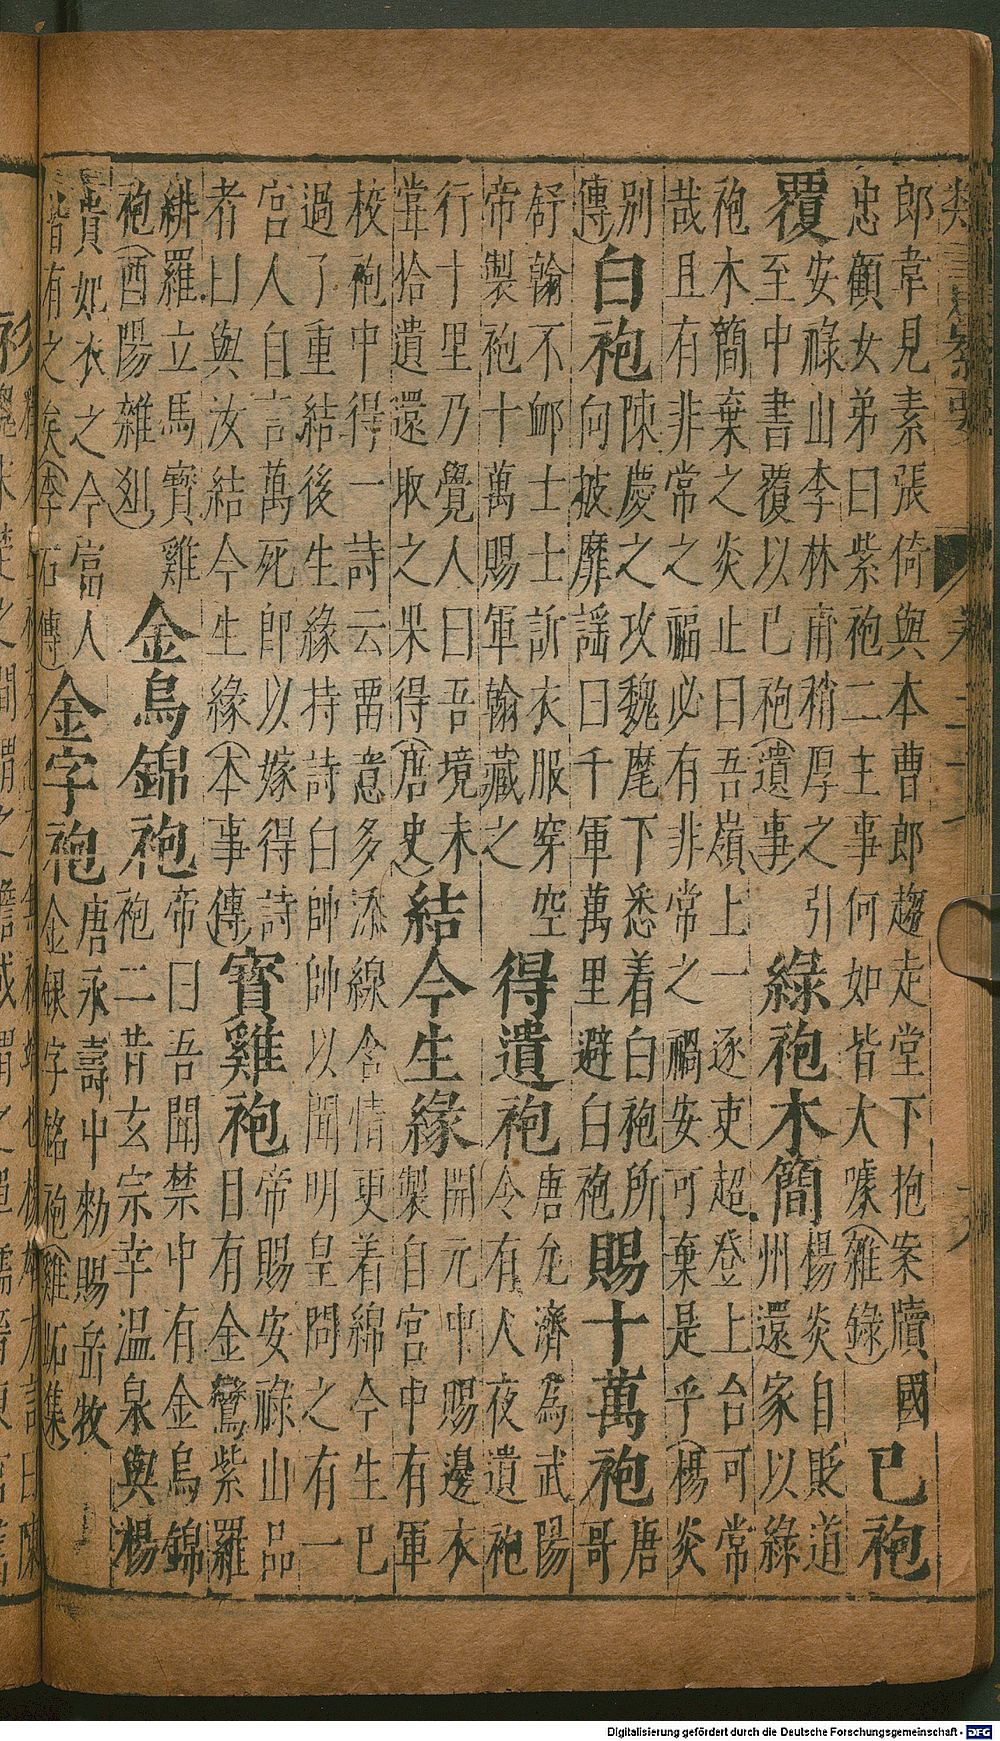 郎韋見素張倚與本曹郎趨走堂下抱案牘國
忠顧女弟曰紫袍二主事何如皆大噱(雜錄)
已袍
覆
安祿山李林甫稍厚之引
至中書覆以已袍(遺事)
綠袍木簡
楊炎自貶道
州還家以綠
袍木簡棄之炎止曰吾嶺上一逐吏超登上台可常
哉且有非常之福必有非常之禍安可棄是乎(楊炎
別
傳)
白袍
陳慶之攻魏麾下悉着白袍所
向披靡謡曰千軍萬里避白袍
賜十萬袍
唐
哥
舒翰不䘏士士訢衣服穿空
帝製袍十萬賜軍翰藏之
得遺袍
唐允濟為武陽
令有人夜遺袍
行十里乃覺人曰吾境未
甞拾遺還取之果得(唐史)
結今生緣
開元中賜邊衣
製自宮中有軍
校袍中得一詩云畱意多添線含情更着綿今生已
過了重結後生緣持詩白帥帥以聞明皇問之有一
宮人自言萬死郎以嫁得詩
者曰與汝結今生緣(本事傳)
寳雞袍
帝賜安祿山品
日有金鸞紫羅
緋羅立馬寳雞
袍(酉陽雜刻)
金烏錦袍
帝曰吾聞禁中有金烏錦
袍二昔玄宗幸温泉與楊
貴妃衣之今富人
皆有之矣(李石傳)
金字袍
唐永壽中勑賜岳牧
金銀字銘袍(雞跖集)
Digitalisierung gefördert durch die Deutsche Forschungsgemeinschaft - DFG